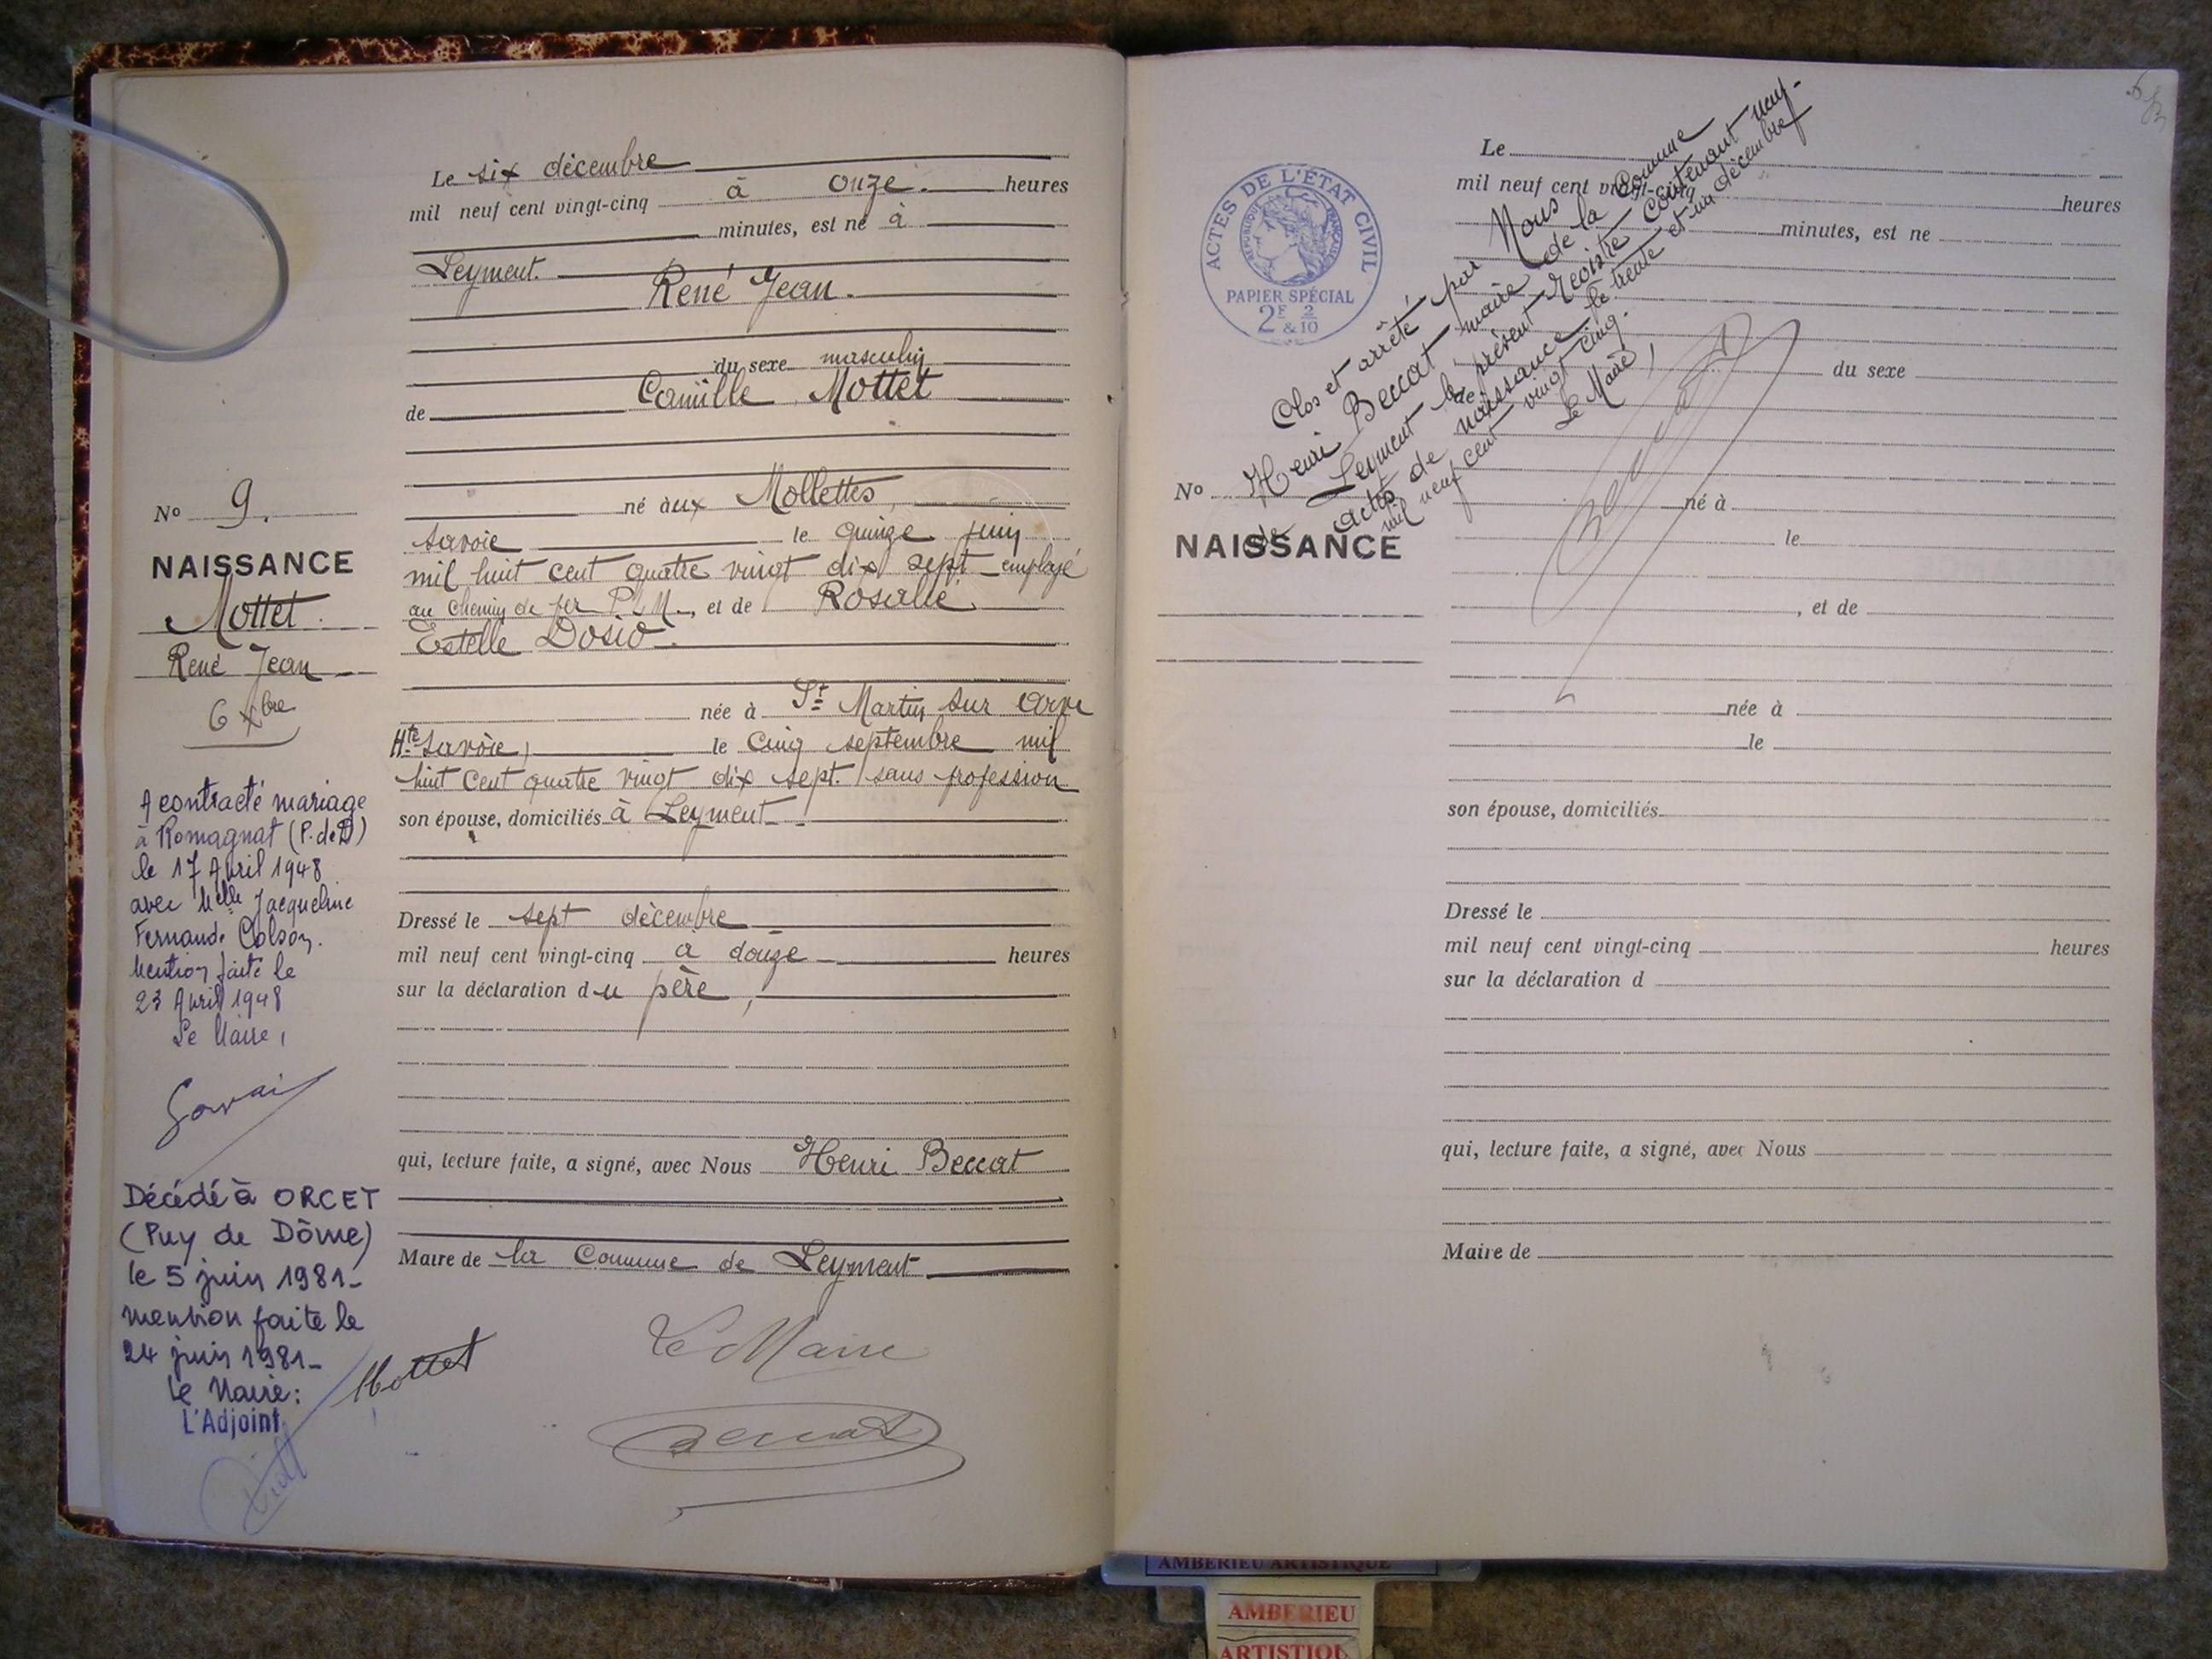 Le six décembre
mil neuf cent vingt-cinq à onze heures
minutes, est né à
Leyment.
René Jean.
du sexe masculin
de Camille Mottet
né aux Mollettes,
Savoie le quinze juin
mil huit cent quatre vingt dix sept employé
au chemin de fer P.L.M., et de Rosalie
Estelle Dosio
née à St Martin sur Arve
Hte Savoie, le cinq septembre mil
huit cent quatre vingt dix sept. sans profession
son épouse, domiciliés à Leyment
Dressé le sept décembre
mil neuf cent vingt-cinq à douze heures
sur la déclaration du père,
qui, lecture faite, a signé, avec Nous Henri Beccat
Maire de la Commune de Leyment
Le Maire
Beccat
Mottet
No 9.
NAISSANCE
Mottet
René Jean
6 Xbre
A contracté mariage
à Romagnat (P. de D)
le 17 Avril 1948
avec Melle Jacqueline
Fernande Colson.
Mention faite le
23 Avril 1948
Le Maire,
Décédé à ORCET
(Puy de Dôme)
le 5 juin 1981-
mention faite le
24 juin 1981-
Le Maire:
L'Adjoint
ACTES DE L'ÉTAT CIVIL
RÉPUBLIQUE FRANÇAISE
PAPIER SPÉCIAL
2F 2
& 10
Le
mil neuf cent vingt-cinq heures
minutes, est né
du sexe
de
né à
le
, et de
née à
le
son épouse, domiciliés
Dressé le
mil neuf cent vingt-cinq heures
sur la déclaration d
qui, lecture faite, a signé, avec Nous
Maire de
No
NAISSANCE
Clos et arrêté par Nous
Henri Beccat maire de la Commune
de Leyment le présent Registre contenant neuf
actes de naissance le trente et un décembre
mil neuf cent vingt cinq.
Le Maire,
Beccat
AMBERIEU ARTISTIQUE
AMBERIEU
ARTISTIQU